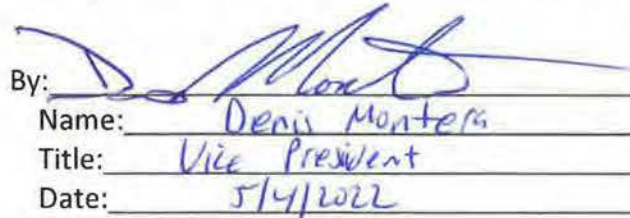 By:
Name: Denis Montera
Title: Vice President
Date: 5/4/2022